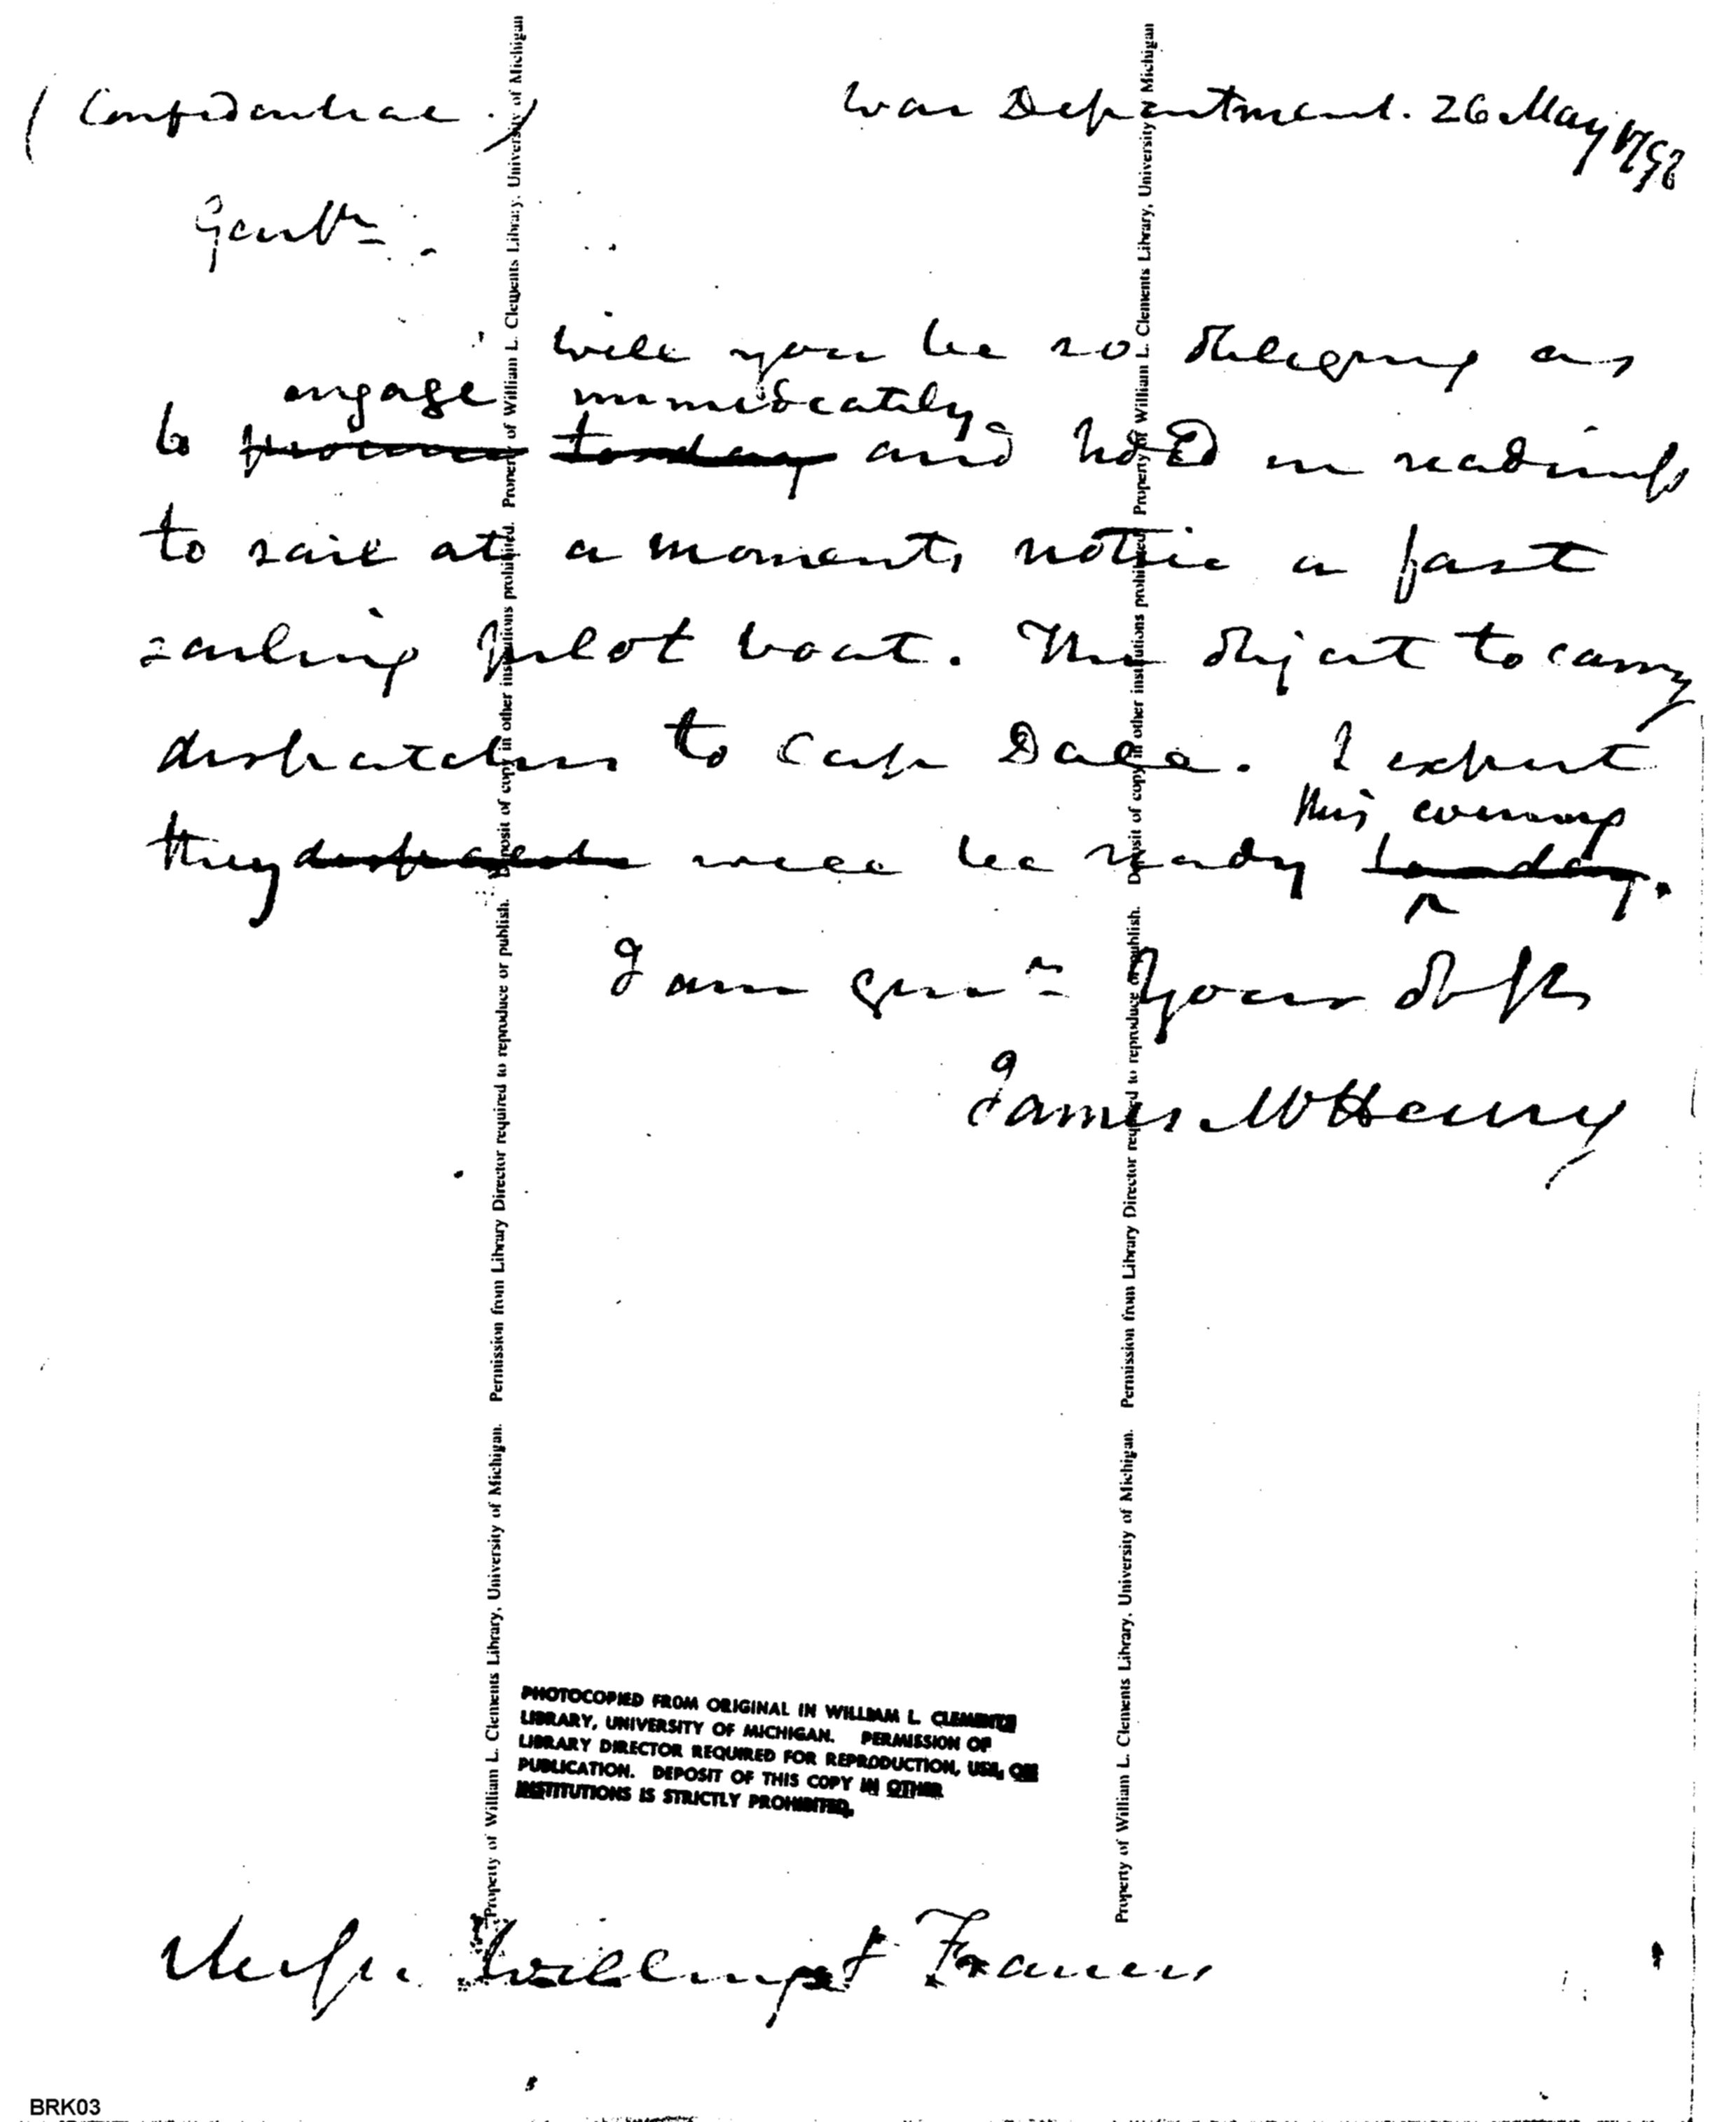 (Confidential.)
War Department. 26 May 1798
Gentn.
Will you be so obliging as
engage immediately
to procure to day and hold in readiness
to sail at a moments notice a fast
sailing pilot boat. The object to carry
dispatches to Cap Dale. I expect
this evening
they dispatches will be ready to day.
^
I am Gentn Your ob st
James McHenry
PHOTOCOPIED FROM ORIGINAL IN WILLIAM L. CLEMENTS
LIBRARY, UNIVERSITY OF MICHIGAN. PERMISSION OF
LIBRARY DIRECTOR REQUIRED FOR REPRODUCTION, USE, OR
PUBLICATION. DEPOSIT OF THIS COPY IN OTHER
INSTITUTIONS IS STRICTLY PROHIBITED.
Messrs. Willing & Francis
BRK03
Property of William L. Clements Library, University of Michigan. Permission from Library Director required to reproduce or publish. Deposit of copy in other institutions prohibited. Property of William L. Clements Library, University of Michigan
Property of William L. Clements Library, University of Michigan. Permission from Library Director required to reproduce or publish. Deposit of copy in other institutions prohibited. Property of William L. Clements Library, University of Michigan